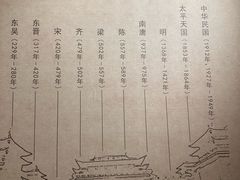 东吴（229年-280年）
东晋（317年-420年）
宋（420年-479年）
齐（479年-502年）
梁（502年-557年）
陈（557年-589年）
南唐（937年-975年）
明（1368年-1421年）
太平天国（1853年-1864年）